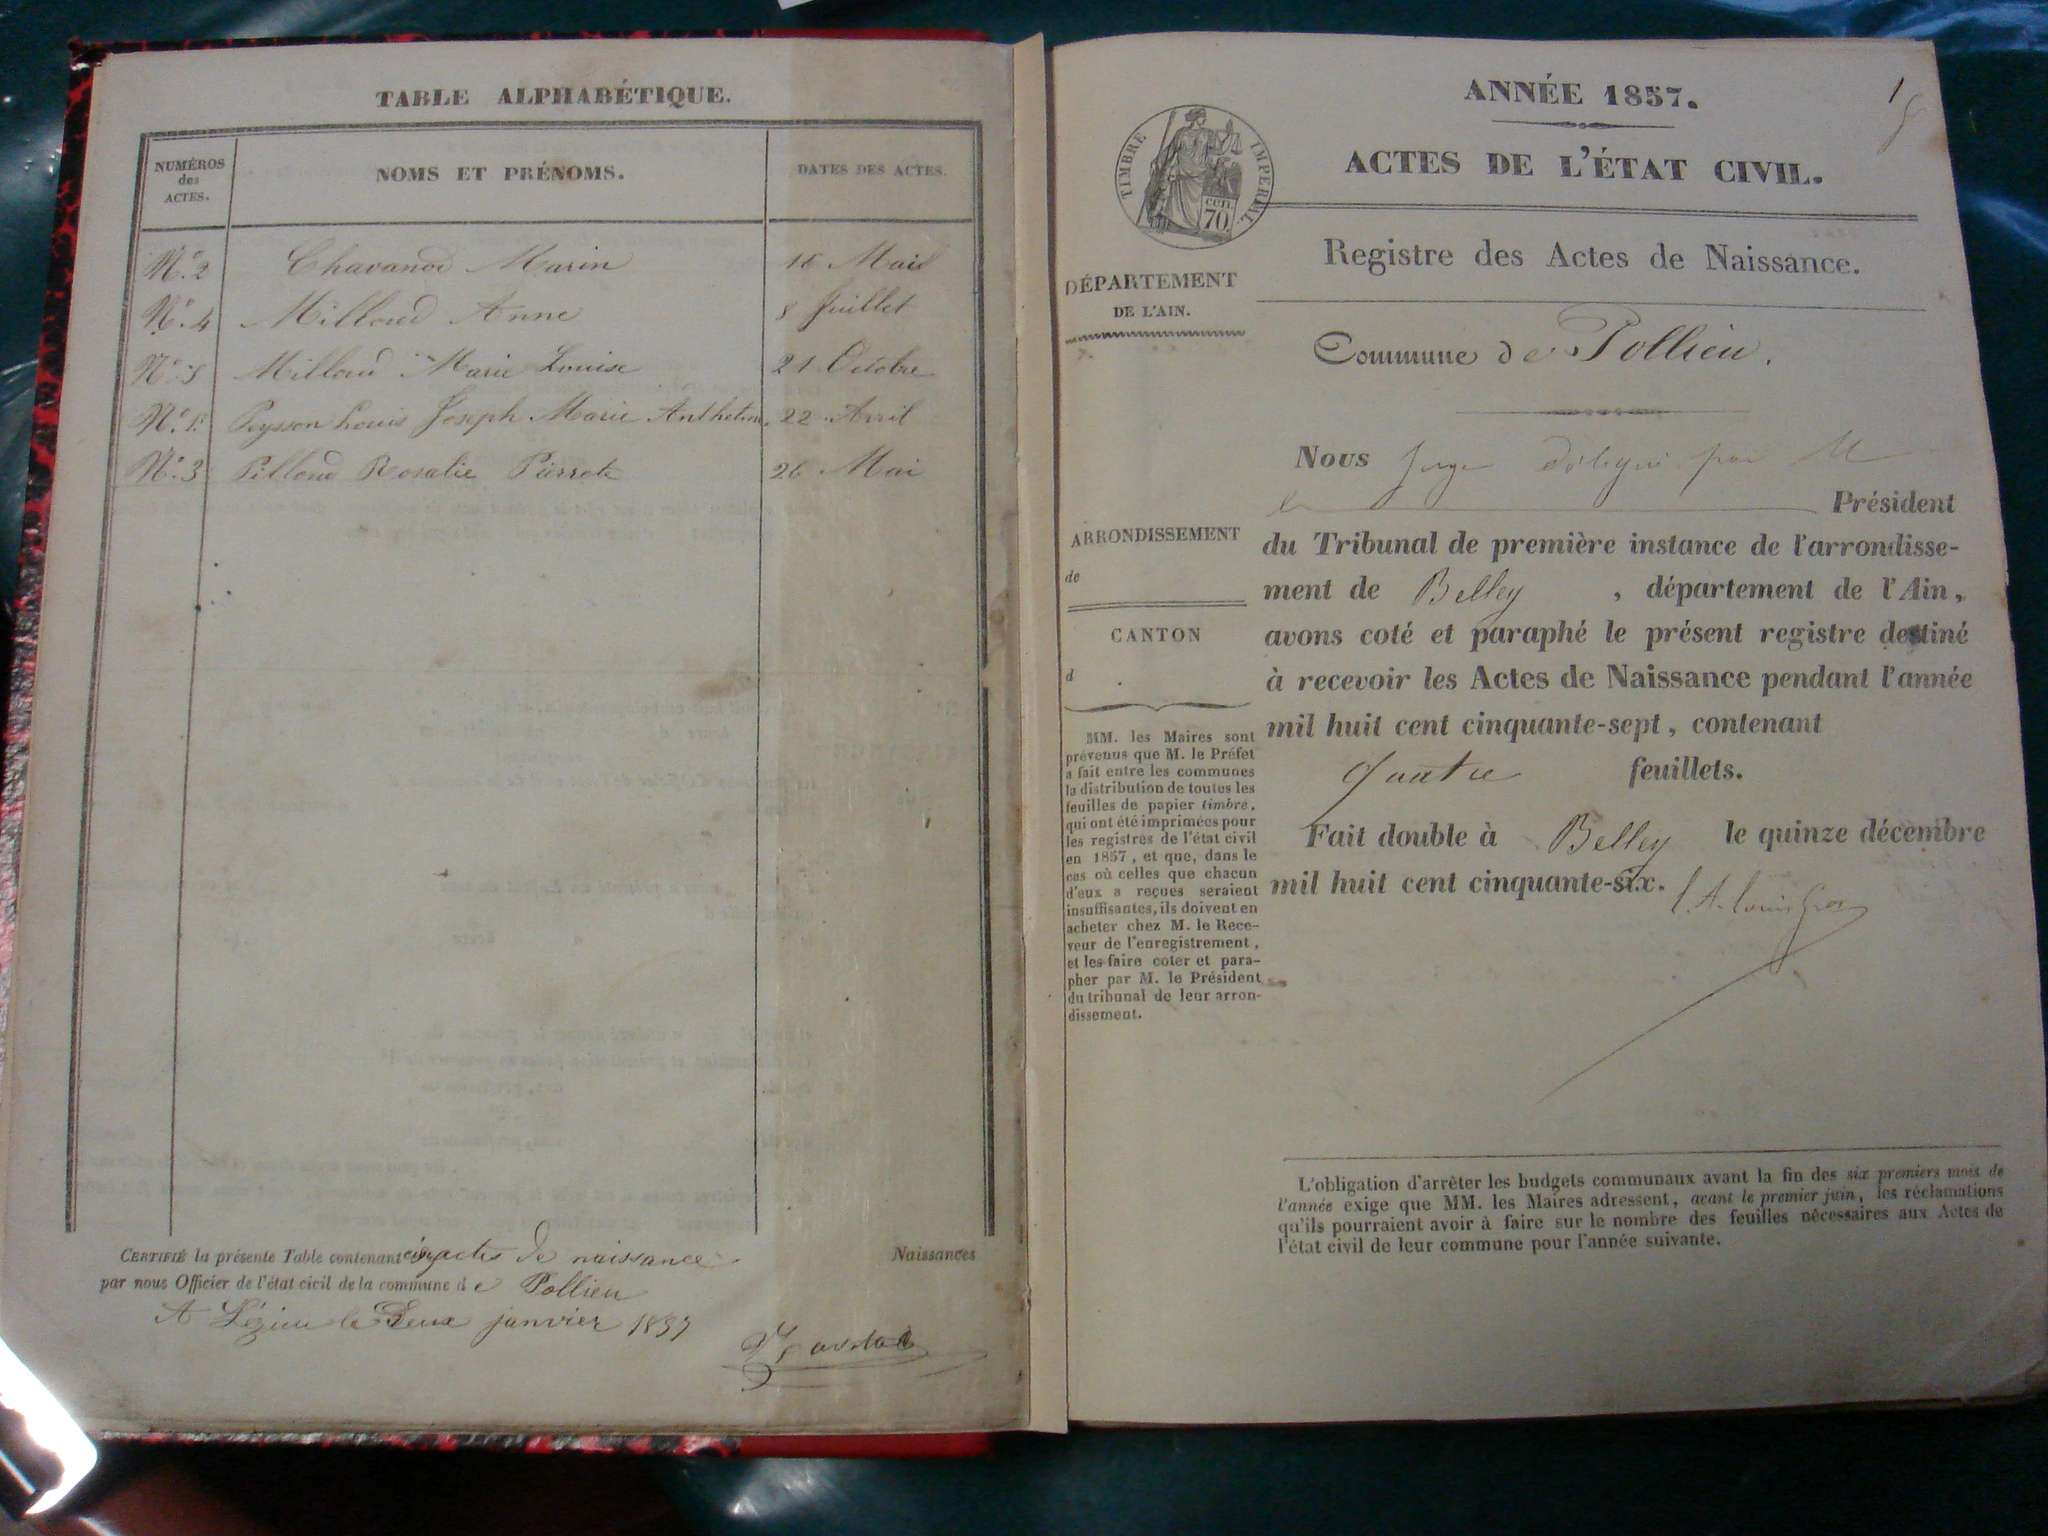 TABLE ALPHABÉTIQUE.
NUMÉROS
des
ACTES.
NOMS ET PRÉNOMS.
DATES DES ACTES.
N.° 2 Marin 16 Mai
N.° 4 Milloud Anne 8 Juillet
N.° 5 Milloud Marie Louise 21 Octobre
N.° 1 Peysson Louis Joseph Marie Anthelme 22 Avril
N.° 3 Pilloud Rosalie Pierrete 26 Mai
CERTIFIÉ la présente Table contenant cinq actes de naissance Naissances
par nous Officier de l'état civil de la commune de Pollieu
A le Deux janvier
1
ANNÉE 1857.
ACTES DE L'ÉTAT CIVIL.
TIMBRE IMPERIAL
CEN.
70
Registre des Actes de Naissance.
DÉPARTEMENT
DE L'AIN.
Commune de Pollieu.
Nous Juge délégué par M
le Président
ARRONDISSEMENT
de
CANTON
d
du Tribunal de première instance de l'arrondisse-
ment de Belley , département de l'Ain,
avons coté et paraphé le présent registre destiné
à recevoir les Actes de Naissance pendant l'année
mil huit cent cinquante-sept, contenant
quatre feuillets.
Fait double à Belley le quinze décembre
mil huit cent cinquante-six.
MM. les Maires sont
prévenus que M. le Préfet
a fait entre les communes
la distribution de toutes les
feuilles de papier timbré,
qui ont été imprimées pour
les registres de l'état civil
en 1857, et que, dans le
cas où celles que chacun
d'eux a reçues seraient
insuffisantes, ils doivent en
acheter chez M. le Rece-
veur de l'enregistrement,
et les faire coter et para-
pher par M. le Président
du tribunal de leur arron-
dissement.
L'obligation d'arrêter les budgets communaux avant la fin des six premiers mois de
l'année exige que MM. les Maires adressent, avant le premier juin, les réclamations
qu'ils pourraient avoir à faire sur le nombre des feuilles nécessaires aux Actes de
l'état civil de leur commune pour l'année suivante.